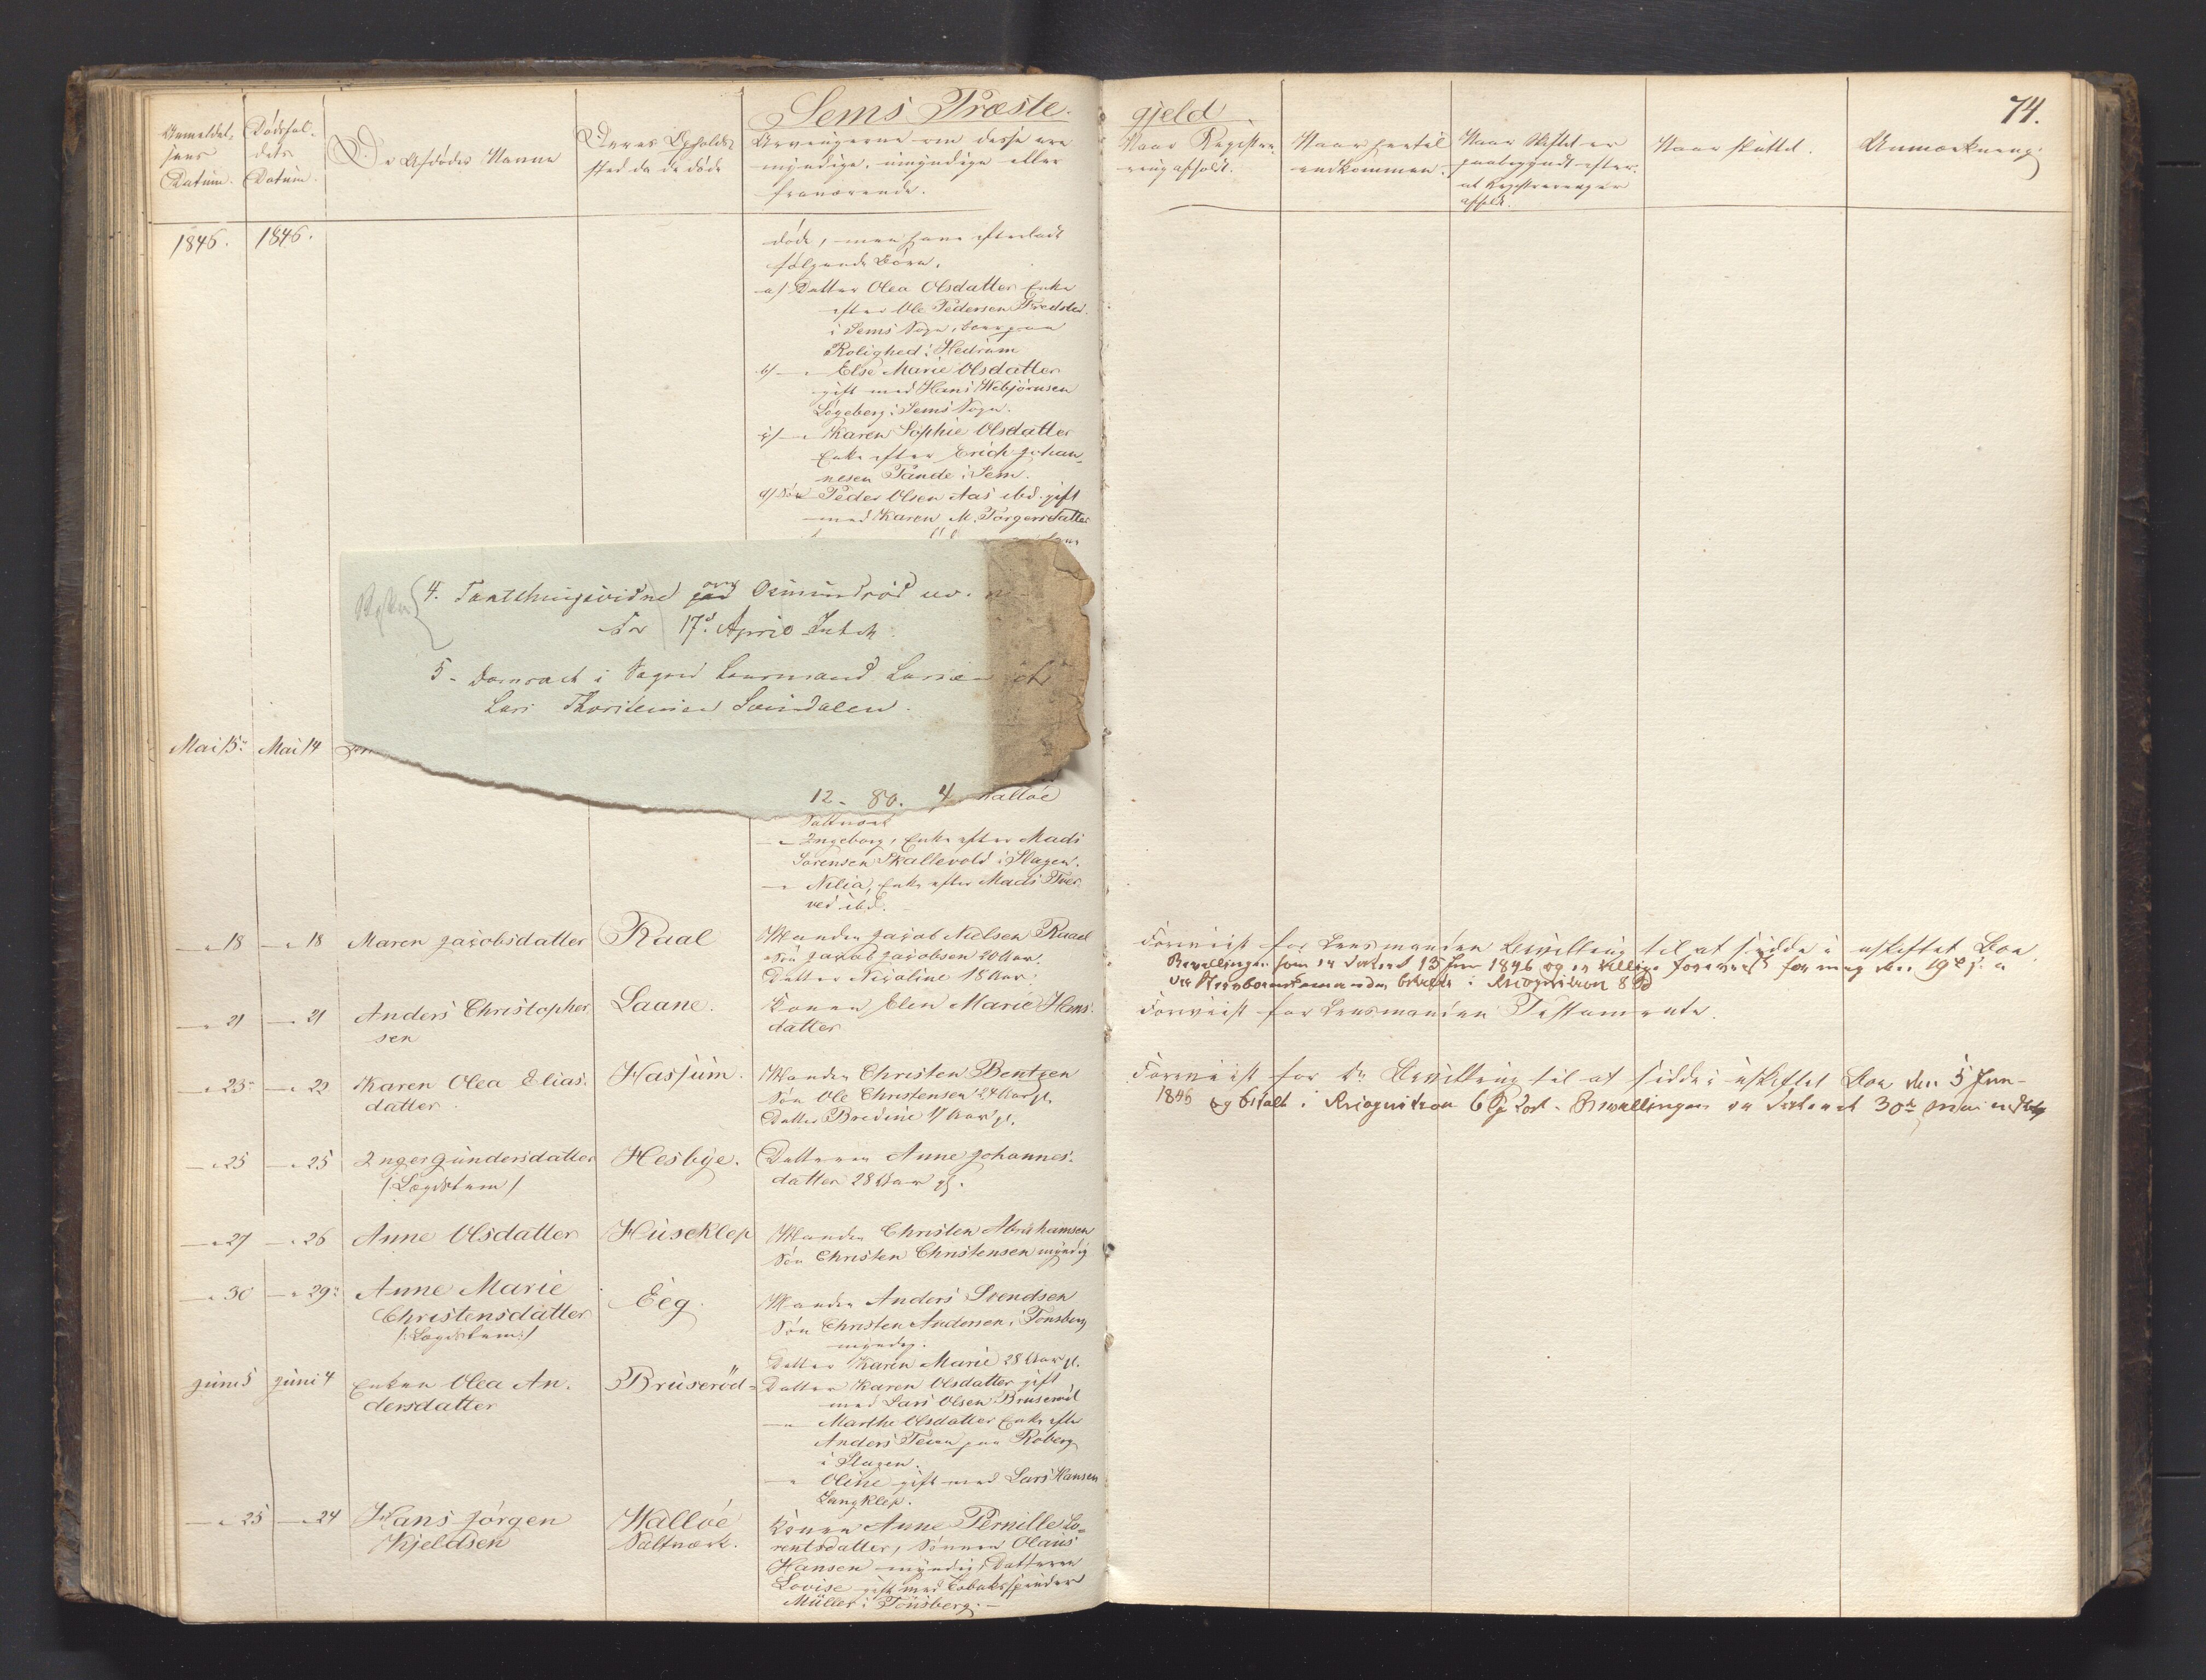 Sems Præste-
gjeld
74.
Anmeldel-
sens
Datum.
Dødsfal-
dets
Datum.
De Afdødes Navne
Deres Opholds-
sted da de døde
Arvingerne om disse ere
myndige, umyndige eller
fraværende.
Naar Registre-
ring afholdt.
Naar hertil
indkommen.
Naar Skiftet er
paabegyndt efter
at Registrering er
afholdt.
Naar sluttet.
Anmærkning
1846.
1846.
døde, men have efterladt
følgende Børn.
a/ Datter Olea Olsdatter Enke
efter Ole Pedersen Fredsted
i Sems Sogn, boer paa
Rolighed i Hedrum
b/ — Else Marie Olsdatter
gift med Hans Webjørnsen
Løgeberg i Sems Sogn.
c/ — Karen Sophie Olsdatter
Enke efter Erich Johan-
nesen Tande i Sem.
d/ Søn Peder Olsen Aas ibd. gift
med Karen M. Jørgensdatter
4. Tartthingsvidne over Osmundrød
17d. April
5. i Sagen Lensmand Larsen
Lars Thorstensen Svindalen.
Mai 15. Mai 14
12 - 80. 4
Walløe
Saltværk
— Ingeborg, Enke efter Mads
Sørensen Skallevold i Slagen.
— Nilia, Enke efter Mads Tver
ved ibd.
— 18 — 18 Maren Jacobsdatter Raal
Manden Jacob Nielsen Raael
Søn Jacob Jacobsen 20 Aar.
Datter Nicoline 18 Aar.
Foreviist for Lensmanden Bevilling til at sidde i uskiftet Boe.
Bevillingen som er dateret 13 Jun 1846 og er tillige foreviist for mig den 19de
betalt i Recognition 8
— 21 — 21 Anders Christopher
sen
Laane.
Konen Elen Marie Hans-
datter
Foreviist for Lensmanden Testamente.
— 23 — 22 Karen Olea Elias-
datter.
Hassum.
Manden Christen Bentzen
Søn Ole Christensen 24 Aar gl.
Datter Bredine 17 Aar gl.
Foreviist for Bevilling til at sidde i uskiftet Boe den 5 Jun-
1846 og betalt i Recognition 6 Bevillingen er dateret 30te Mai
— 25 — 25 Inger Gundersdatter
/: Lægdslem /
Hesbye.
Datteren Anne Johannes-
datter 28 Aar gl.
— 27 — 26 Anne Olsdatter Huseklep
Manden Christen Abrahamsen
Søn Christen Christensen myndig
— 30 — 29 Anne Marie
Christensdatter
/: Lægdslem :/
Eeg.
Manden Anders Svendsen
Søn Christen Andersen i Tønsberg
myndig.
Datter Karen Marie 28 Aar gl.
Juni 5 Juni 4 Enken Olea An-
dersdatter
Bruserød -
Datter Karen Olsdatter gift
med Lars Olsen Bruserød
— Marthe Olsdatter Enke efter
Anders paa Roberg
i Slagen.
— Oline gift med Lars Hansen
Langklep.
— 25 — 24 Hans Jørgen
Kjeldsen
Walløe
Saltværk.
Konen Anne Pernille Lo-
rentsdatter, Sønnen Olaus
Hansen myndig, Datteren
Lovise gift med Tobaksspinder
Müller i Tønsberg. —